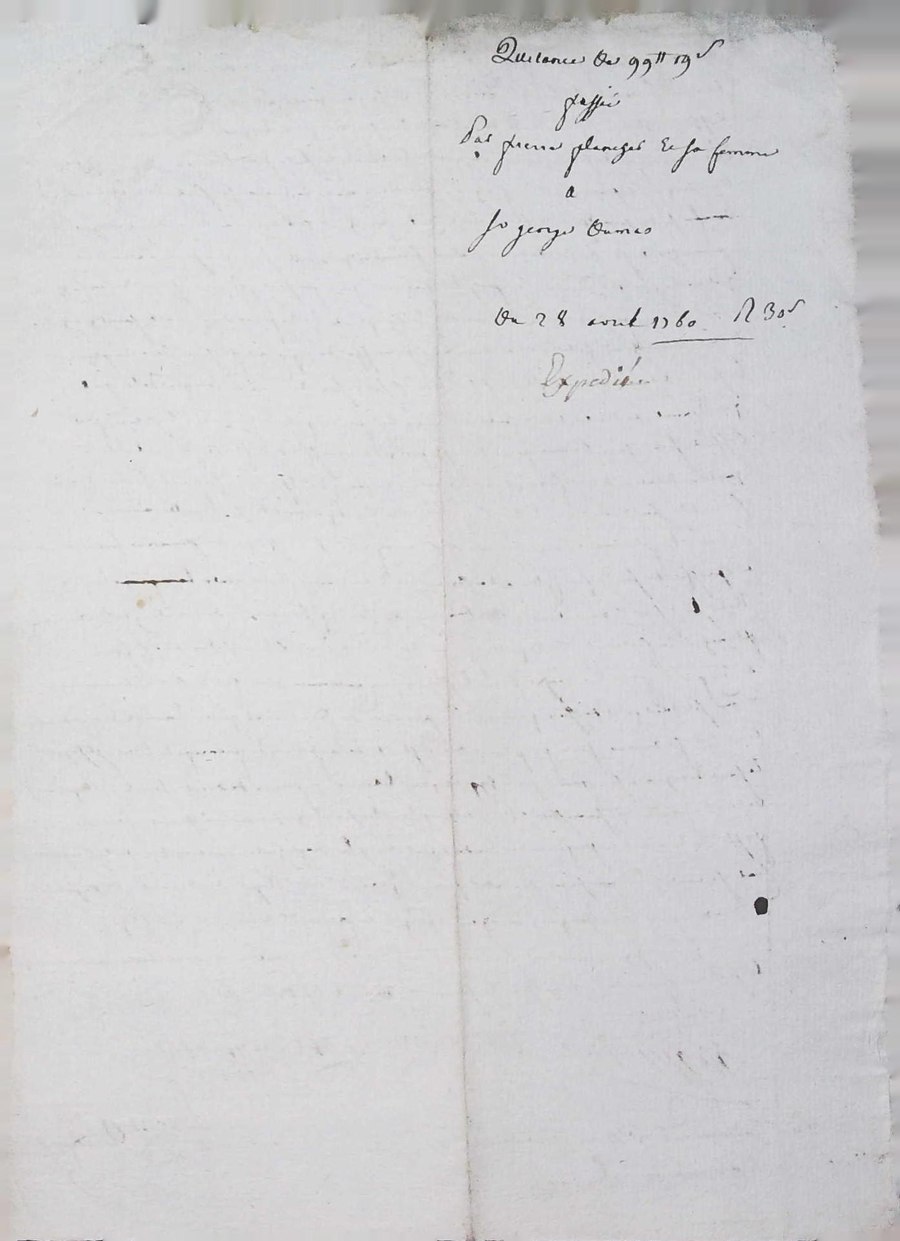 Quitance de 99tt 19s
passée
Par pierre planchas Et sa femme
a
Sr george dumas
du 28 avril 1760 R 30s
Expediée